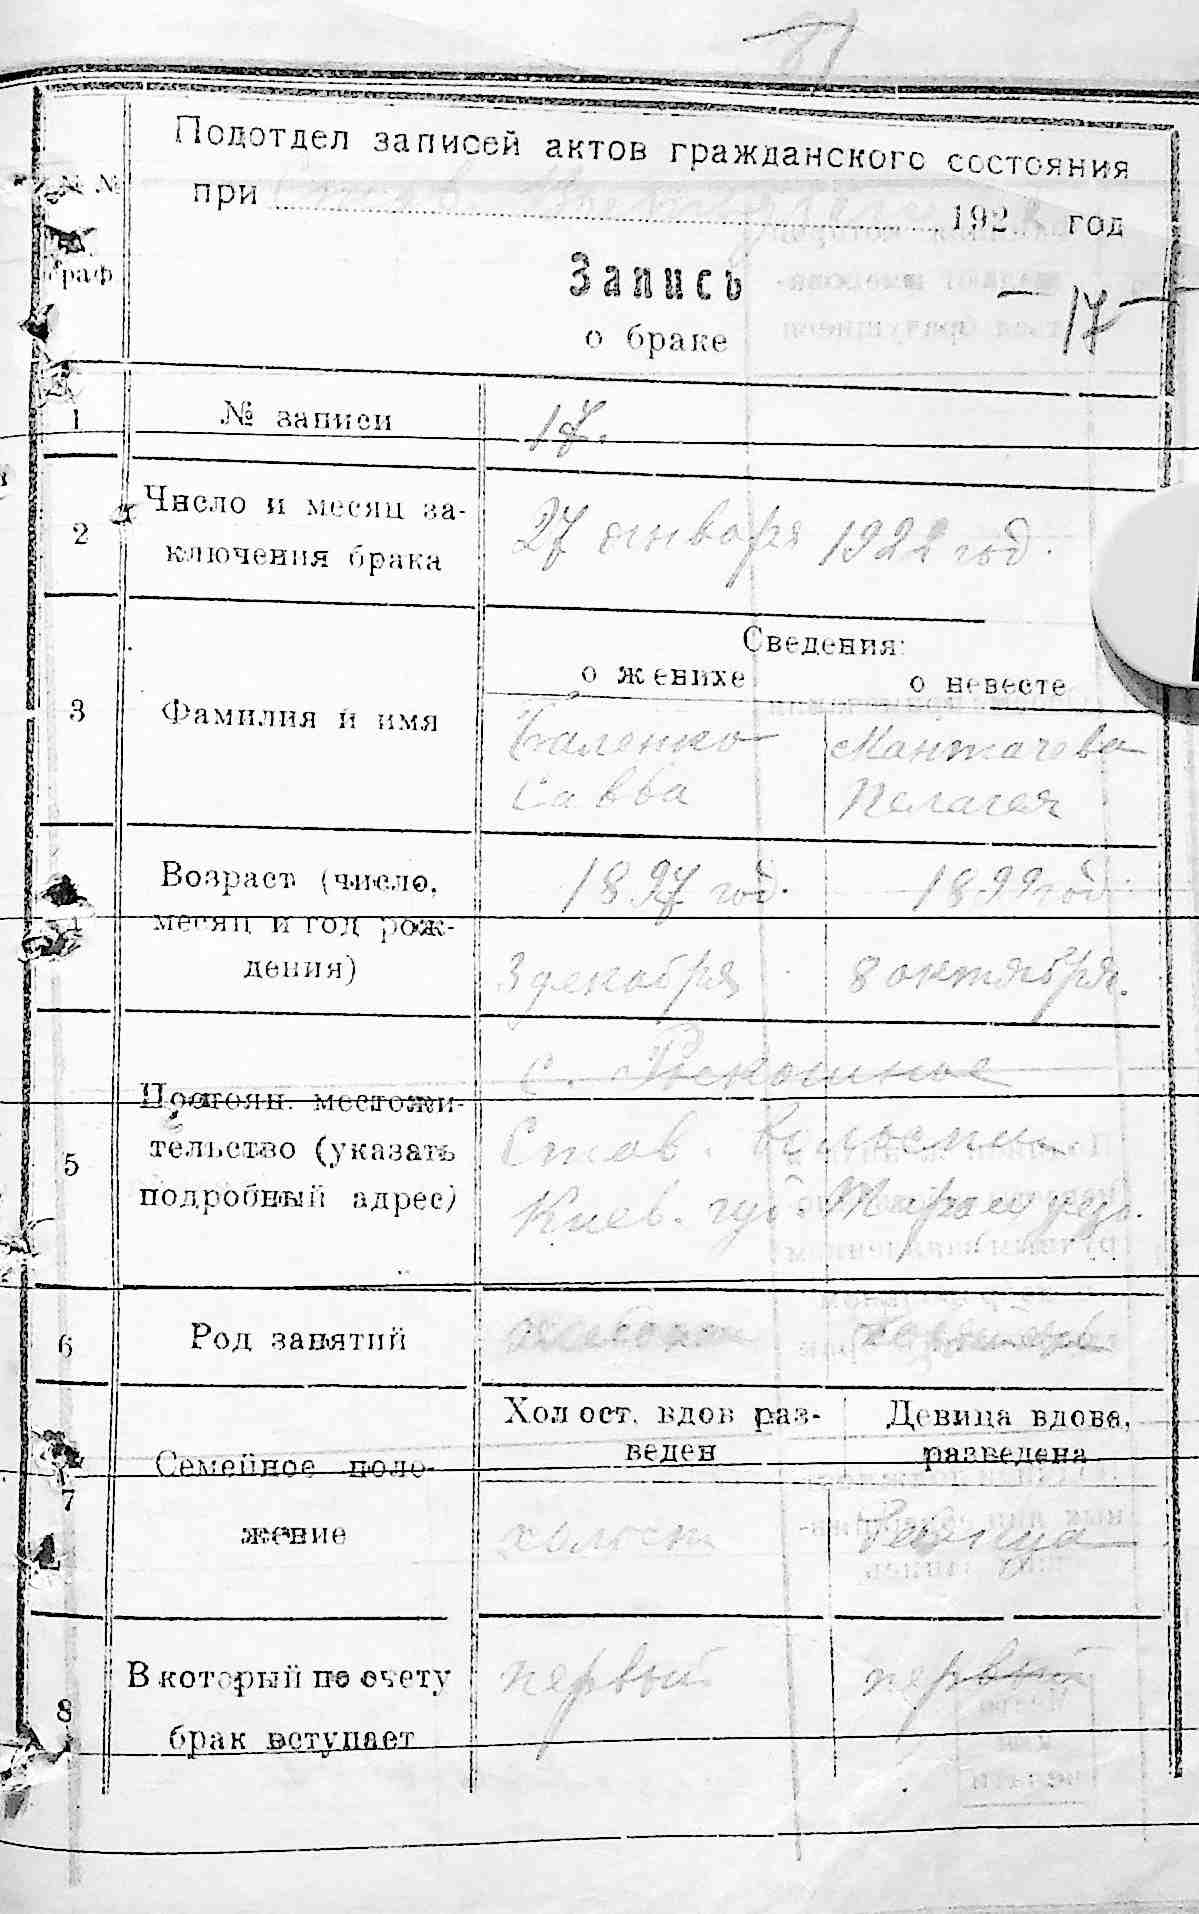 81
Подотдел записей актов гражданского состояния
№№ граф
при 1922 год
Запись
о браке
— 17 —
1 № записи 17.
2 Число и месяц заключения брака 27 января 1922 год.
Сведения:
о женихе о невесте
3 Фамилия и имя Баленко Мантачева
Савва Пелагея
4 Возраст (число, 1897 год. 1899 год.
месяц и год рождения) 3 декабря 8 октября.
5 Постоян. местожи-
тельство (указать Став. волости
подробный адрес) Киев. губ. Таращ уез.
6 Род занятий
Холост. вдов раз- Девица вдова,
веден разведена
7 Семейное поло-
жение холост девица
8 В который по счету первый первый
брак вступает